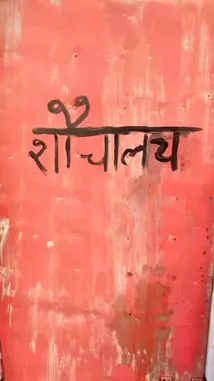 शौचालय